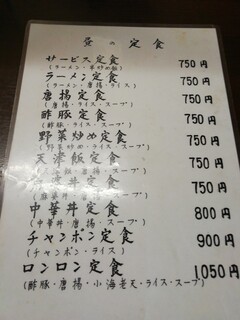 昼の定食
サービス定食 750円
(ラーメン・半炒め飯)
ラーメン定食 750円
(ラーメン・唐揚・ライス)
唐揚定食 750円
(唐揚・ライス・スープ)
酢豚定食 750円
(酢豚・ライス・スープ)
野菜炒め定食 750円
(野菜炒め・ライス・スープ)
天津飯定食 750円
飯・唐揚・スープ)
丼定食 750円
唐揚・スープ)
中華丼定食 800円
(中華丼・唐揚・スープ)
チャンポン定食 900円
(チャンポン・ライス)
ロンロン定食 1050円
(酢豚・唐揚・小海老天・ライス・スープ)